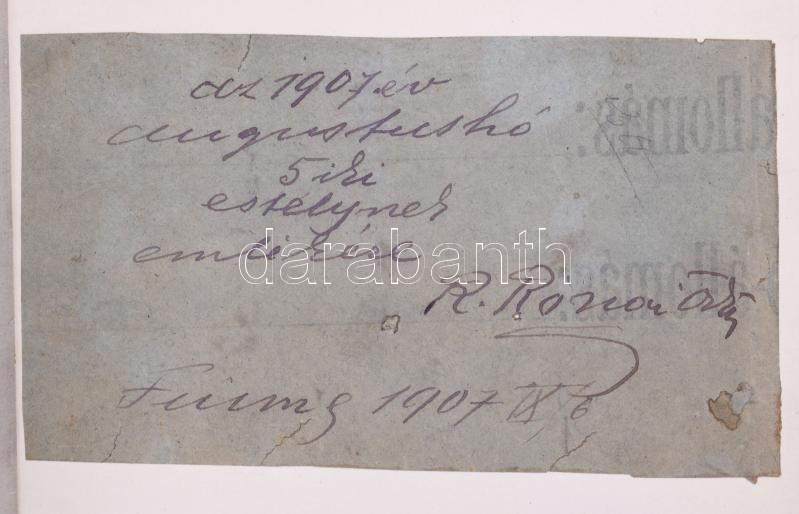 az 1907 év
augusztushó
5 iki
estélynek
emlékéül
R. Rónai
Fiume 1907 IX/6
állomás:
állomás:
darabanth